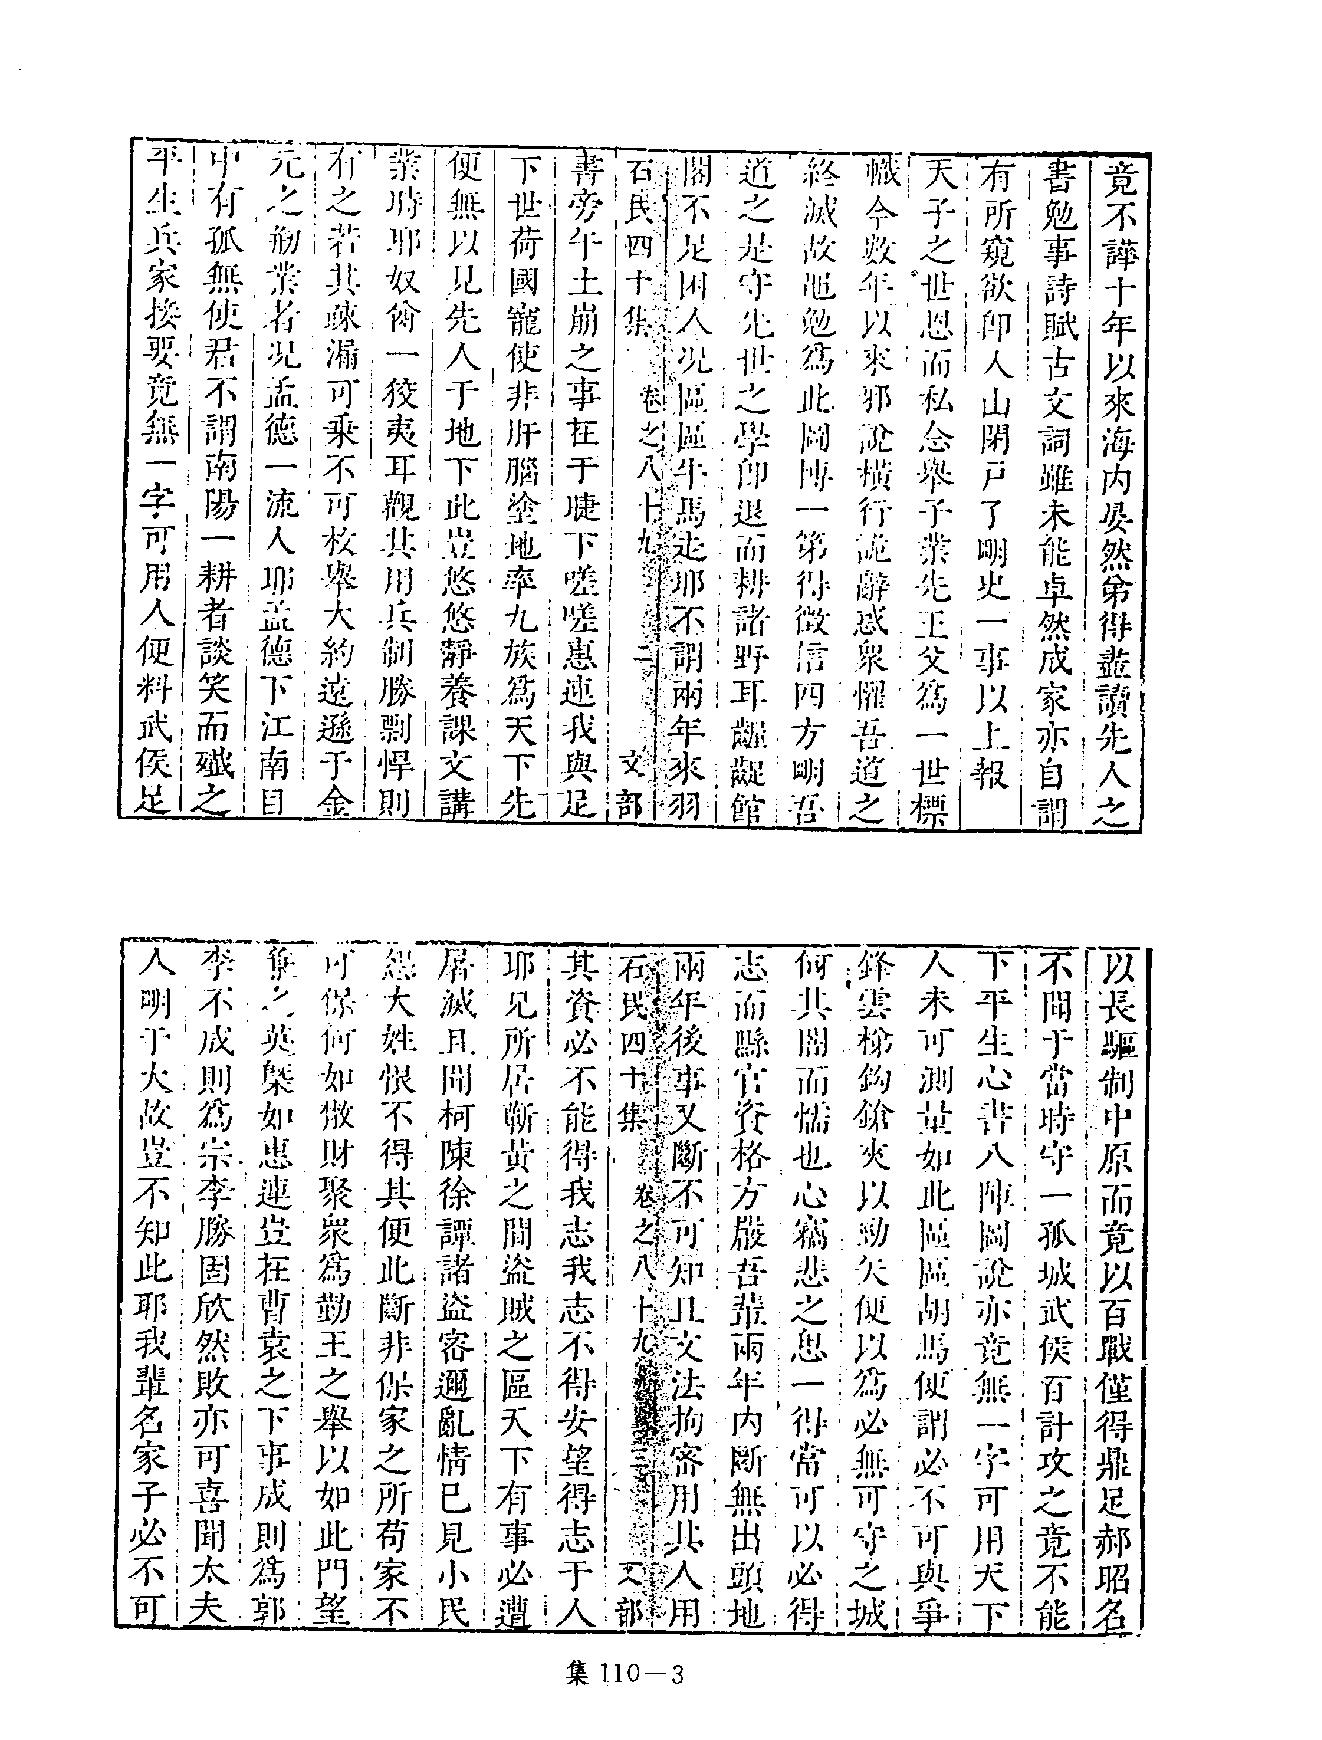 竟不譁十年以來海内晏然第得藎讀先人之
書勉事詩賦古文詞雖未能卓然成家亦自謂
有所窺欲卽入山閉戸了明史一事以上報
天子之世恩而私念舉子業先王父爲一世標
幟今數年以來邪說橫行詭辭惑衆懼吾道之
終滅故黽勉爲此圖博一第得徵信四方明吾
道之是守先世之學卽退而耕諸野耳齷齪館
閣不足困人况區區牛馬走耶不謂兩年來羽
石民四十集 卷之八十九 二 文部
書旁午土崩之事在于睫下嗟嗟惠連我與足
下世荷國寵使非肝腦塗地率九族爲天下先
便無以見先人于地下此豈悠悠靜養課文講
業時耶奴酋一狡夷耳觀其用兵制勝剽悍則
有之若其疎漏可乘不可枚舉大約遠遜于金
元之剏業者况孟德一流人耶孟德下江南目
中有孤無使君不謂南陽一耕者談笑而殲之
平生兵家接要竟無一字可用人便料武侯足
以長驅制中原而竟以百戰僅得鼎足郝昭名
不聞于當時守一孤城武侯百計攻之竟不能
下平生心書八陣圖說亦竟無一字可用天下
人未可測量如此區區胡馬便謂必不可與爭
鋒雲梯鈎鎗夾以勁矢便以爲必無可守之城
何其闇而懦也心竊悲之思一得當可以必得
志而縣官資格方嚴吾輩兩年内斷無出頭地
兩年後事又斷不可知且文法拘密用其人用
石民四十集 卷之八十九 三 文部
其資必不能得我志我志不得安望得志于人
耶兄所居蘄黃之間盜賊之區天下有事必遭
屠滅且聞柯陳徐譚諸盜密邇亂情已見小民
怨大姓恨不得其便此斷非保家之所苟家不
可保何如散財聚衆爲勤王之舉以如此門望
兼之英槩如惠連豈在曹袁之下事成則爲郭
李不成則爲宗李勝固欣然敗亦可喜聞太夫
人明于大故豈不知此耶我輩名家子必不可
集 110—3